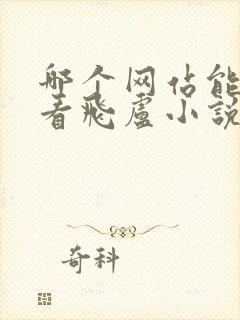 哪个网佔能
看飛盧小説
奇科